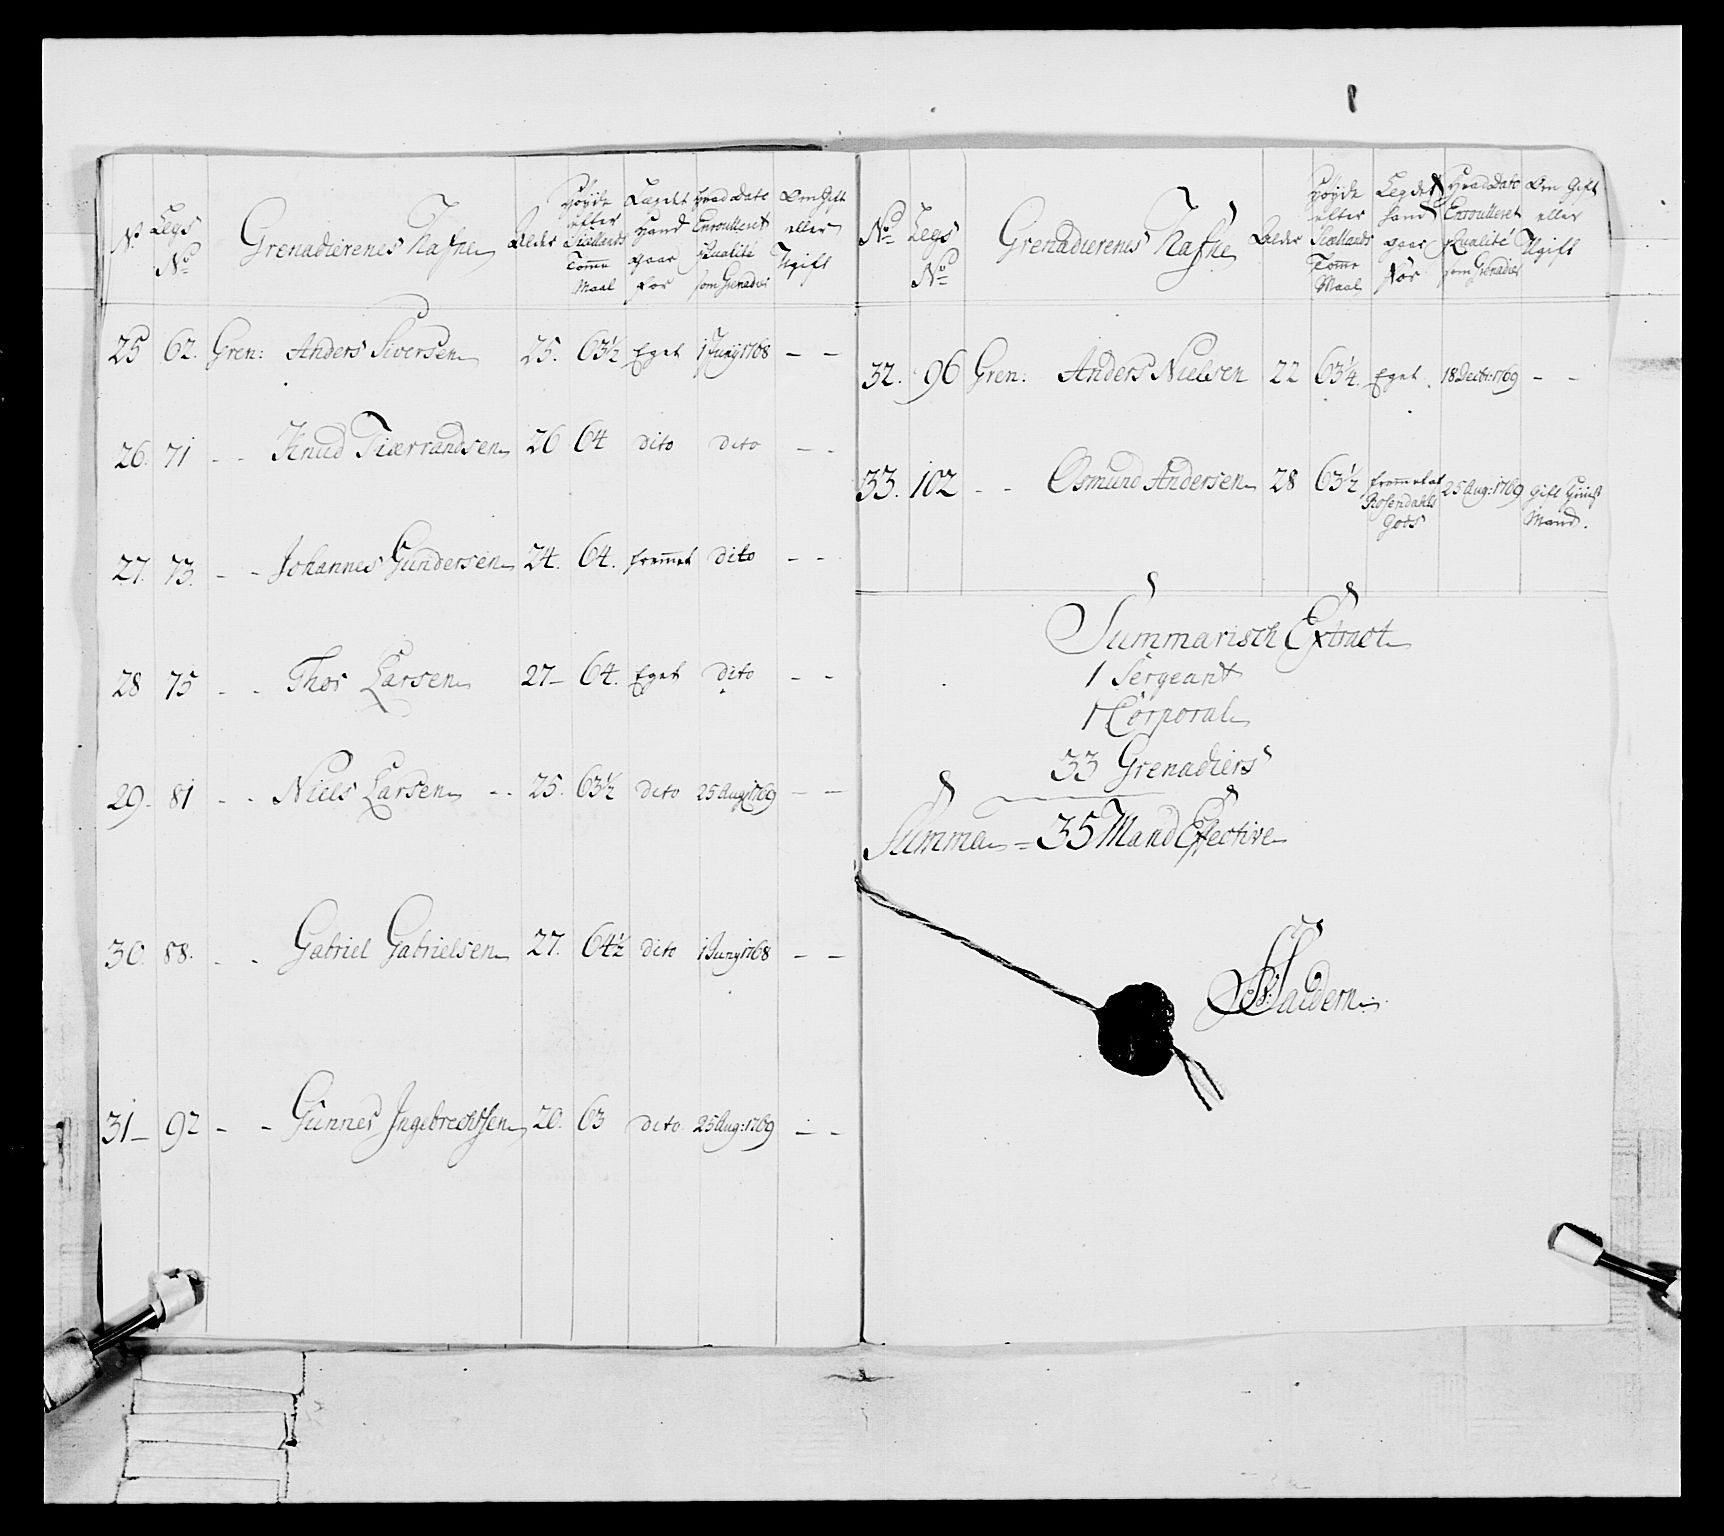 No Legs No Grenadierenes Nafne Alder Høyde efter Siællands Tomme Maal Lægdet Hand gaar for Hvad Dato Enroulleret Qualité som Grenadier Om Gift eller Ugift
25 62. Gren: Anders Siversen 25. 63½ Eget 1 Juny 1768 – –
26. 71 – – Knud Tiærrandsen 26 64 dito dito – –
27. 73. – – Johannes Gundersen 24. 64. fremmet dito – –
28 75 – – Thor Larsen 27– 64. Eget dito – –
29. 81 – – Niels Larsen – – 25. 63½ dito 25 Aug: 1769 – –
30. 88. – – Gabriel Gabrielsen 27. 64½ dito 1 Juny 1768 – –
31– 92 – – Gunner Ingebrechtsen 20. 63 dito. 25 Aug: 1769 – –
No Legs No Grenadierenes Nafne Alder Høyde efter Siællands Tomme Maal Legdet hand gaar for Hvad Dato Enroulleret Qualité som Grenadier Om Gift eller Ugift
32. 96 Gren: Anders Nielsen 22 63¼ Eget. 18 Decbr: 1769 – –
33. 102 – – Osmund Andersen 28 63½ fremmet af Rosendahls Gods 25 Aug: 1769 Gift Huus Mand.
Summarisch Extract
1 Sergeant
1 Corporal
33 Grenadiers
Summa = 35 Mand Effective